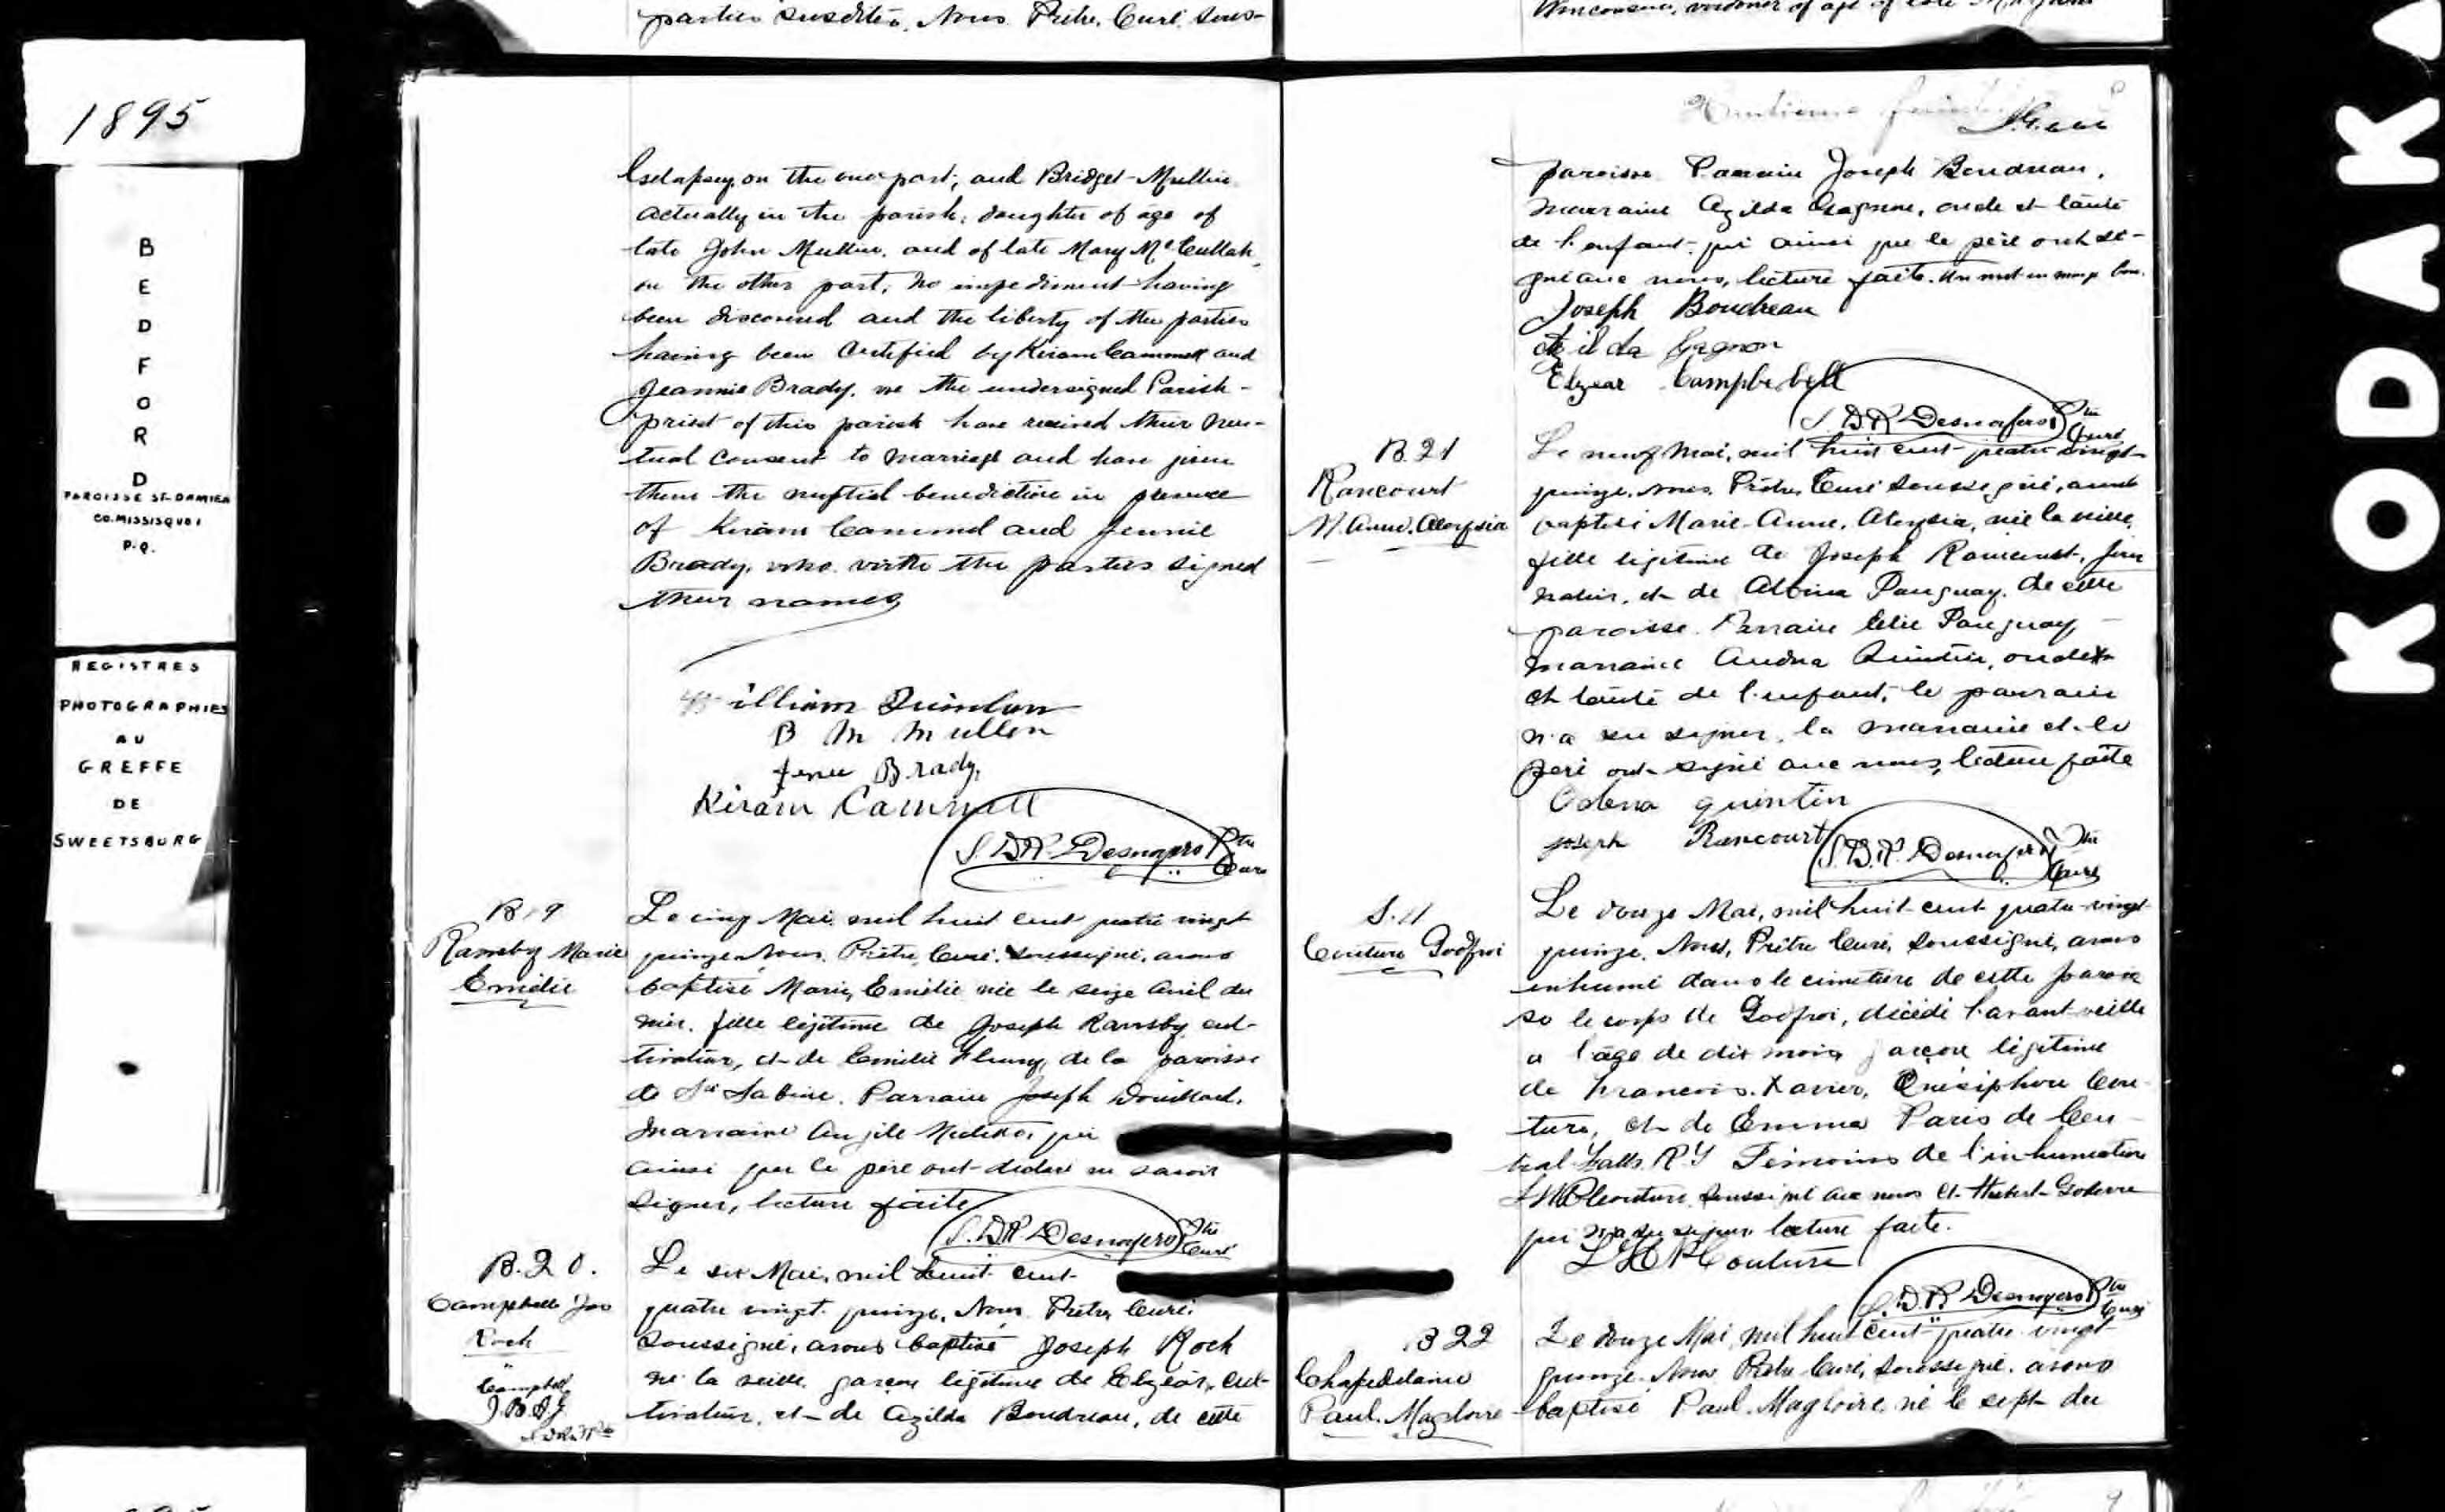 parties susdites, Nous Prêtre, Curé, sous-
1895
B
E
D
F
O
R
D
PAROISSE ST-DAMIEN
CO. MISSISQUOI
P.Q.
REGISTRES
PHOTOGRAPHIES
AU
GREFFE
DE
SWEETSBURG
on the one part, and Bridget Mullin
actually in the parish, daughter of age of
late John Mullin, and of late Mary McCullah,
on the other part, no impediment having
been discovered and the liberty of the parties
having been certified by Kiram Cammell and
Jeannie Brady, we the undersigned Parish-
priest of this parish have received their mu-
tual consent to marriage and have given
them the nuptial benediction in presence
of Kiram Cammel and Jennie
Brady, who with the parties signed
their names
William Quinlan
B M Mullen
Jenie Brady,
Kiram Cammell
S.D.R. Desnoyers Ptre Curé
B 19
Ramsby Marie
Emélie
Le cinq Mai mil huit cent quatre vingt
quinze Nous, Prêtre, Curé, soussigné, avons
baptisé Marie, Emélie née le seize Avril der
nier, fille légitime de Joseph Ramsby cul-
tivateur, et de Emélie Fleury, de la paroisse
de Ste Sabine. Parrain Joseph Douillard,
marraine Angèle qui
ainsi que le père ont déclaré ne savoir
signer, lecture faite
S.D.R. Desnoyers Ptre Curé
B.20.
Campbell Jos
Roch
Campbell
J.B.A.J.
Le six Mai, mil huit cent
quatre vingt quinze, Nous Prêtre, Curé,
soussigné, avons baptisé Joseph Roch
né la veille garçon légitime de Elzéar, cul-
tivateur, et de Azilda Boudreau, de cette
Huitième feuillet
paroisse Parrain Joseph Boudreau,
marraine Azilda Gagnon, oncle et tante
de l'enfant qui ainsi que le père ont si-
gné avec nous, lecture faite. Un mot en marge bon.
Joseph Boudreau
Azilda Gagnon
Elzear Campbebell
S.D.R. Desnoyers Ptre Curé
B.21
Rancourt
M. Anne. Aloysia
Le neuf Mai, mil huit cent quatre vingt-
quinze, nous, Prêtre, Curé soussigné, avons
baptisé Marie-Anne, Aloysia, née la veille,
fille légitime de Joseph Rancourt, jour
nalier, et de Albina Tanguay, de cette
paroisse. Parrain Tanguay,
marraine Quintin, oncle
et tante de l'enfant, le parrain
n'a su signer, la marraine et le
père ont signé avec nous, lecture faite
Odena quintin
joseph Rancourt
S.D.R. Desnoyers Ptre Curé
S.11
Couture Godfroi
Le douze Mai, mil huit cent quatre-vingt
quinze, Nous, Prêtre Curé, soussigné, avons
inhumé dans le cimetière de cette parois
se le corps de Godfroi, décédé l'avant-veille
a l'âge de dix mois garçon légitime
de Francois-Xavier, Onésiphore Cou-
ture, et de Emma Paris de Cen-
tral Falls R.I Témoins de l'inhumation
Couture soussigné avec nous et Hubert
qui n'a su signer lecture faite.
Couture
S.D.R. Desnoyers Ptre Curé
B 22
Chapdelaine
Paul. Magloire
Le douze Mai, mil huit cent quatre vingt
quinze, Nous Prêtre Curé, soussigné, avons
baptisé Paul. Magloire, né le sept du
KODAK